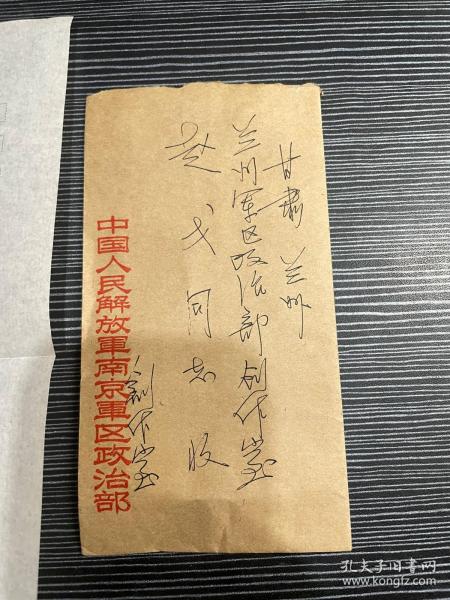 甘肃 兰州
兰州军区政治部创作室
赵戈同志收
中国人民解放軍南京軍区政治部
創作室
孔夫子旧书网
www.kongfz.com